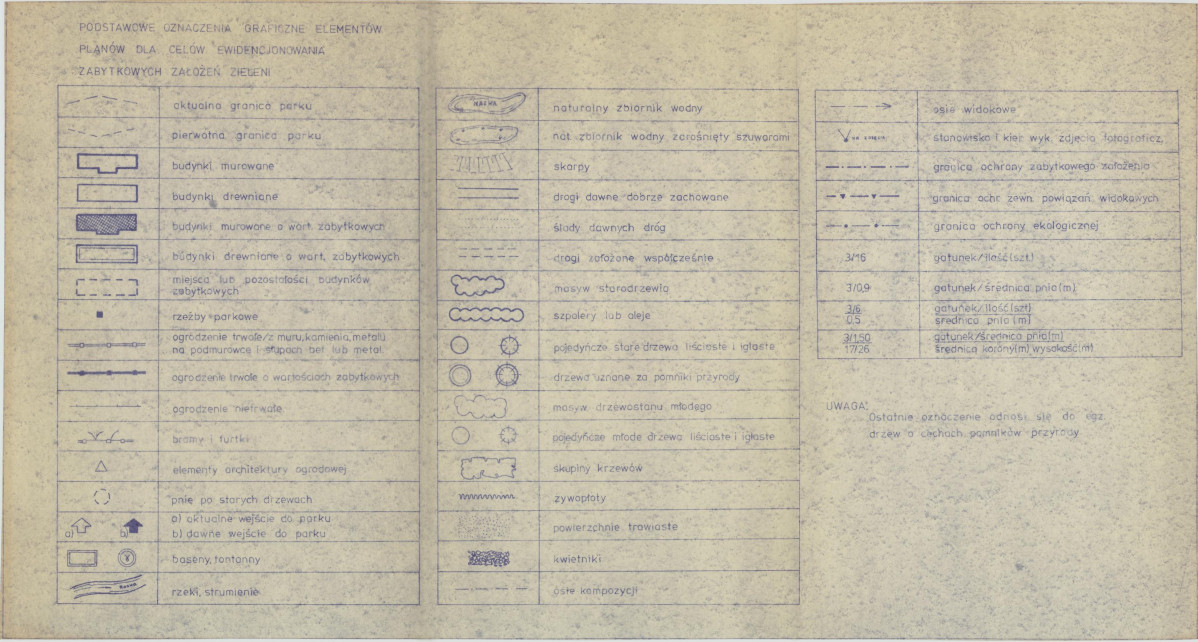 PODSTAWOWE OZNACZENIA GRAFICZNE ELEMENTÓW
PLANÓW DLA CELÓW EWIDENCJONOWANIA
ZABYTKOWYCH ZAŁOŻEŃ ZIELENI
aktualna granica parku
pierwotna granica parku
budynki murowane
budynki drewniane
budynki murowane o wart. zabytkowych
budynki drewniane o wart. zabytkowych
miejsca lub pozostałości budynków
zabytkowych
rzeźby parkowe
ogrodzenie trwałe/z muru, kamienia, metalu
na podmurówce i słupach bet. lub metal.
ogrodzenie trwałe o wartościach zabytkowych
ogrodzenie nietrwałe
bramy i furtki
elementy architektury ogrodowej
pnie po starych drzewach
a) b) a) aktualne wejście do parku
b) dawne wejście do parku
baseny, fontanny
rzeki, strumienie
naturalny zbiornik wodny
nat. zbiornik wodny zarośnięty szuwarami
skarpy
drogi dawne dobrze zachowane
ślady dawnych dróg
drogi założone współcześnie
masyw starodrzewia
szpalery lub aleje
pojedyńcze stare drzewa liściaste i iglaste
drzewa uznane za pomniki przyrody
masyw drzewostanu młodego
pojedyńcze młode drzewa liściaste i iglaste
skupiny krzewów
żywopłoty
powierzchnie trawiaste
kwietniki
osie kompozycji
osie widokowe
stanowisko i kier. wyk. zdjęcia fotograficz.
granica ochrony zabytkowego założenia
granica ochr. zewn. powiązań widokowych
granica ochrony ekologicznej
3/16 gatunek/ilość(szt.)
3/0,9 gatunek/średnica pnia(m)
3/6 gatunek/ilość(szt)
0,5 średnica pnia(m)
3/1,50 gatunek/średnica pnia(m)
17/26 średnica korony(m) wysokość(m)
UWAGA:
Ostatnie oznaczenie odnosi się do egz.
drzew o cechach pomników przyrody